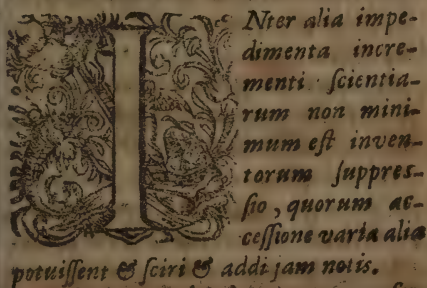 INter alia impe-
dimenta incre-
menti ſcientia-
rum non mini-
mum eſt inven-
torum ſuppreſ-
ſio, quorum ac-
ceſſione varia alia
potuiſſent & ſciri & addi jam notis.